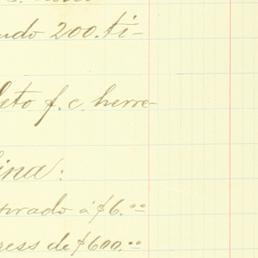 udo 200. ti-
leto f. c. herre-
ina:
prado á $6.00
ress de $600.00